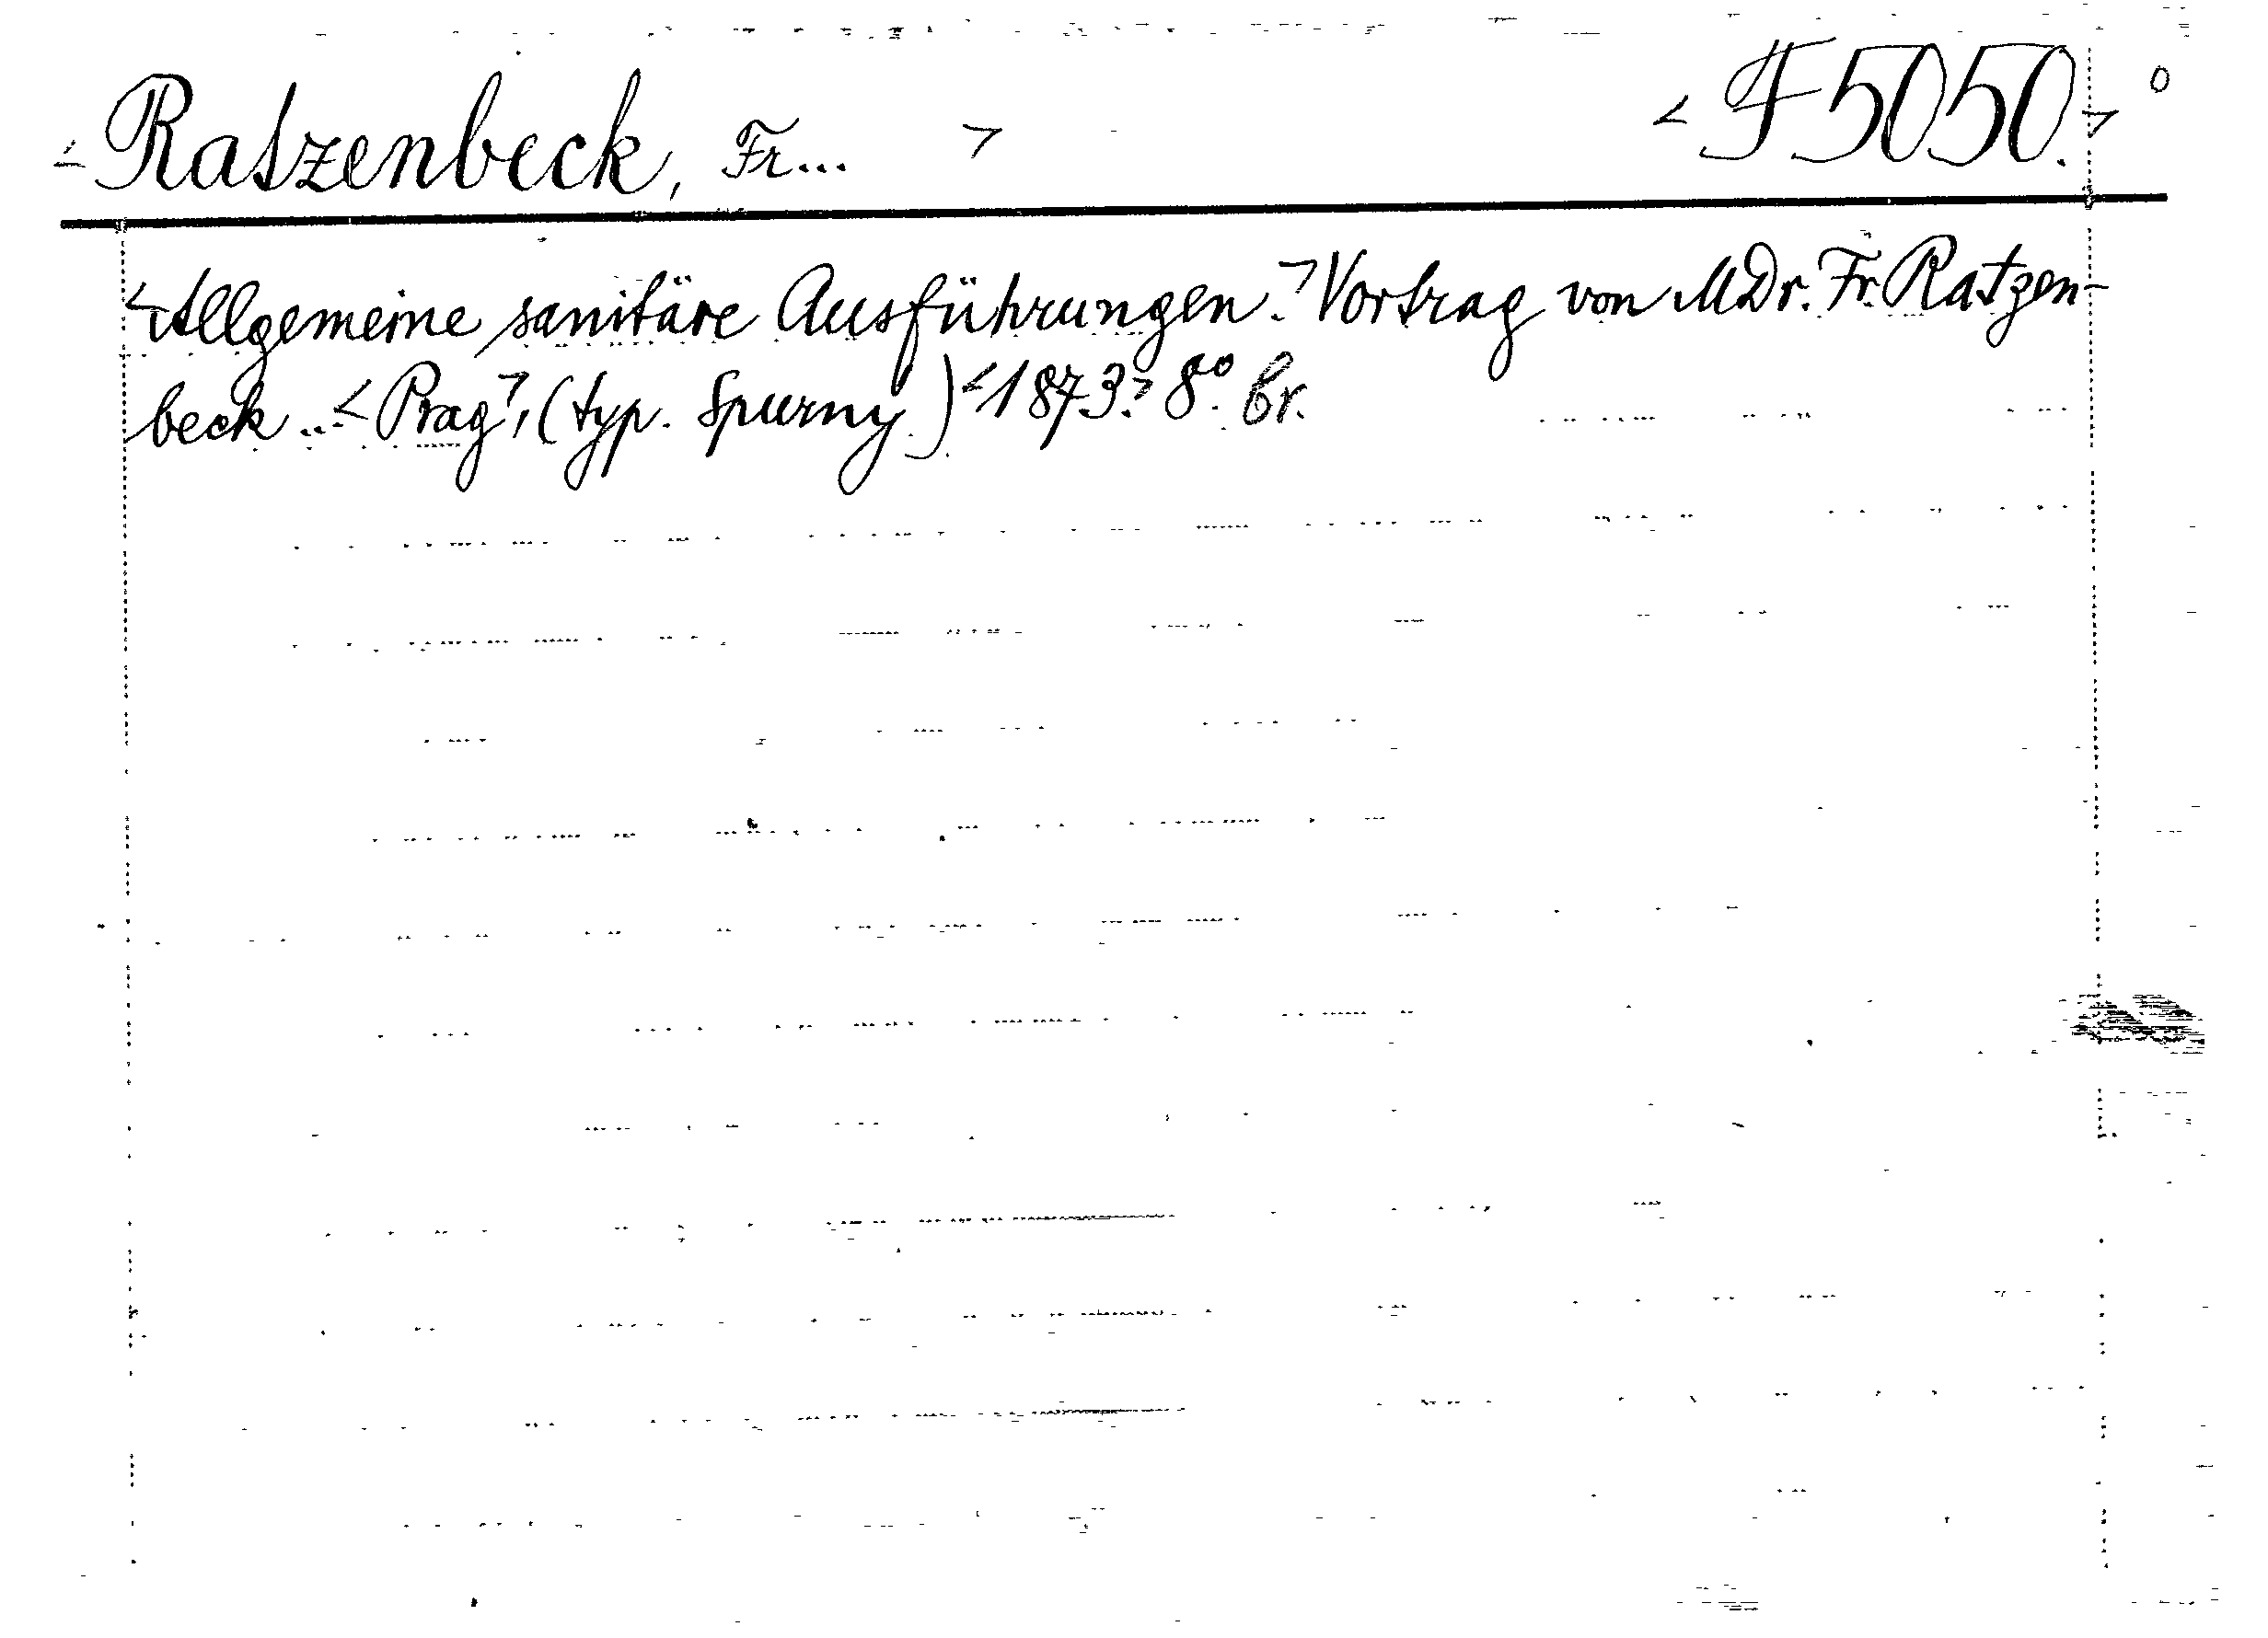 <Ratzenbeck, Fr... > <F 5050.> o
<Allgemeine sanitäre Ausführungen.> Vortrag von MDr. Fr. Ratzen-
beck... <Prag>, (typ. Spurny.) <1873.> 8º. br.